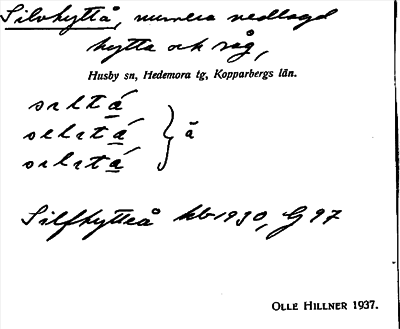 Silvhyttå, numera nedlagd
hytta och såg,
Husby sn, Hedemora tg, Kopparbergs län.
å
Silfhytteå kb 1930, G 97
OLLE HILLNER 1937.